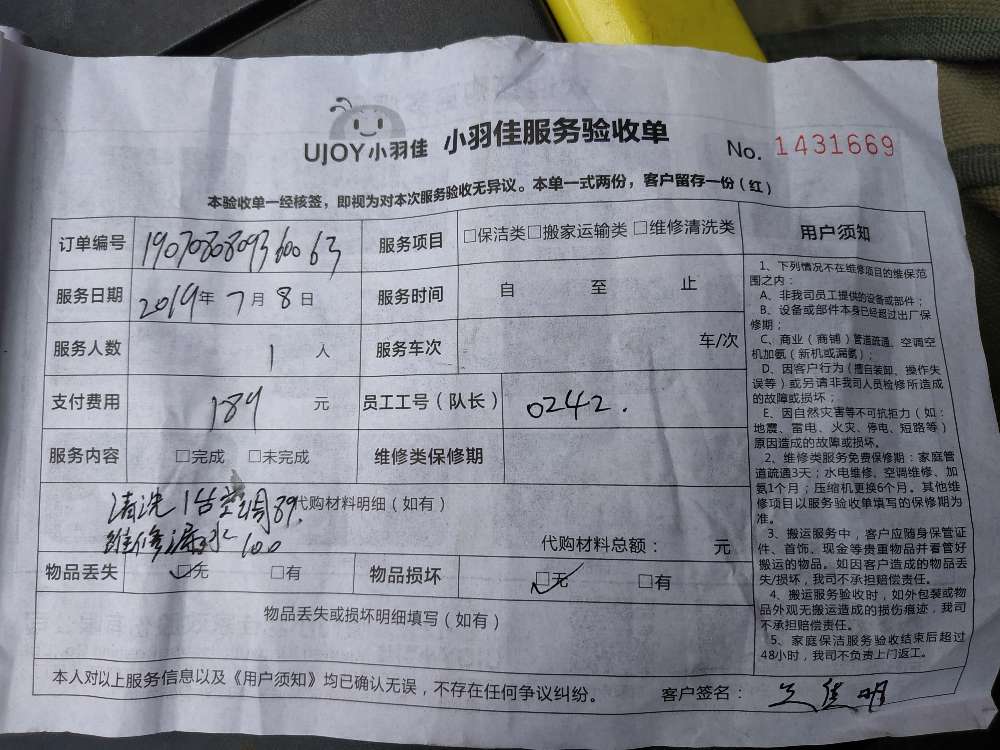 UJOY小羽佳 小羽佳服务验收单 No. 1431669
本验收单一经核签，即视为对本次服务验收无异议。本单一式两份，客户留存一份（红）
订单编号 1907080809360063 服务项目 □保洁类□搬家运输类 □维修清洗类
服务日期 2019年7月8日 服务时间 自 至 止
服务人数 1 人 服务车次 车/次
支付费用 189 元 员工工号（队长） 0242.
服务内容 □完成 □未完成 维修类保修期
清洗1台空调89. 代购材料明细（如有）
维修漏水 100
代购材料总额： 元
物品丢失 □无 □有 物品损坏 □无 □有
物品丢失或损坏明细填写（如有）
本人对以上服务信息以及《用户须知》均已确认无误，不存在任何争议纠纷。 客户签名：
用户须知
1、下列情况不在维修项目的维保范
围之内：
A、非我司员工提供的设备或部件；
B、设备或部件本身已经超过出厂保
修期；
C、商业（商铺）管道疏通、空调空
机加氨（新机或漏氨）；
D、因客户行为（擅自装卸、操作失
误等）或另请非我司人员检修所造成
的故障或损坏；
E、因自然灾害等不可抗拒力（如：
地震、雷电、火灾、停电、短路等）
原因造成的故障或损坏。
2、维修类服务免费保修期：家庭管
道疏通3天；水电维修、空调维修、加
氨1个月；压缩机更换6个月。其他维
修项目以服务验收单填写的保修期为
准。
3、搬运服务中，客户应随身保管证
件、首饰、现金等贵重物品并看管好
搬运的物品。如因客户造成的物品丢
失/损坏，我司不承担赔偿责任。
4、搬运服务验收时，如外包装或物
品外观无搬运造成的损伤痕迹，我司
不承担赔偿责任。
5、家庭保洁服务验收结束后超过
48小时，我司不负责上门返工。